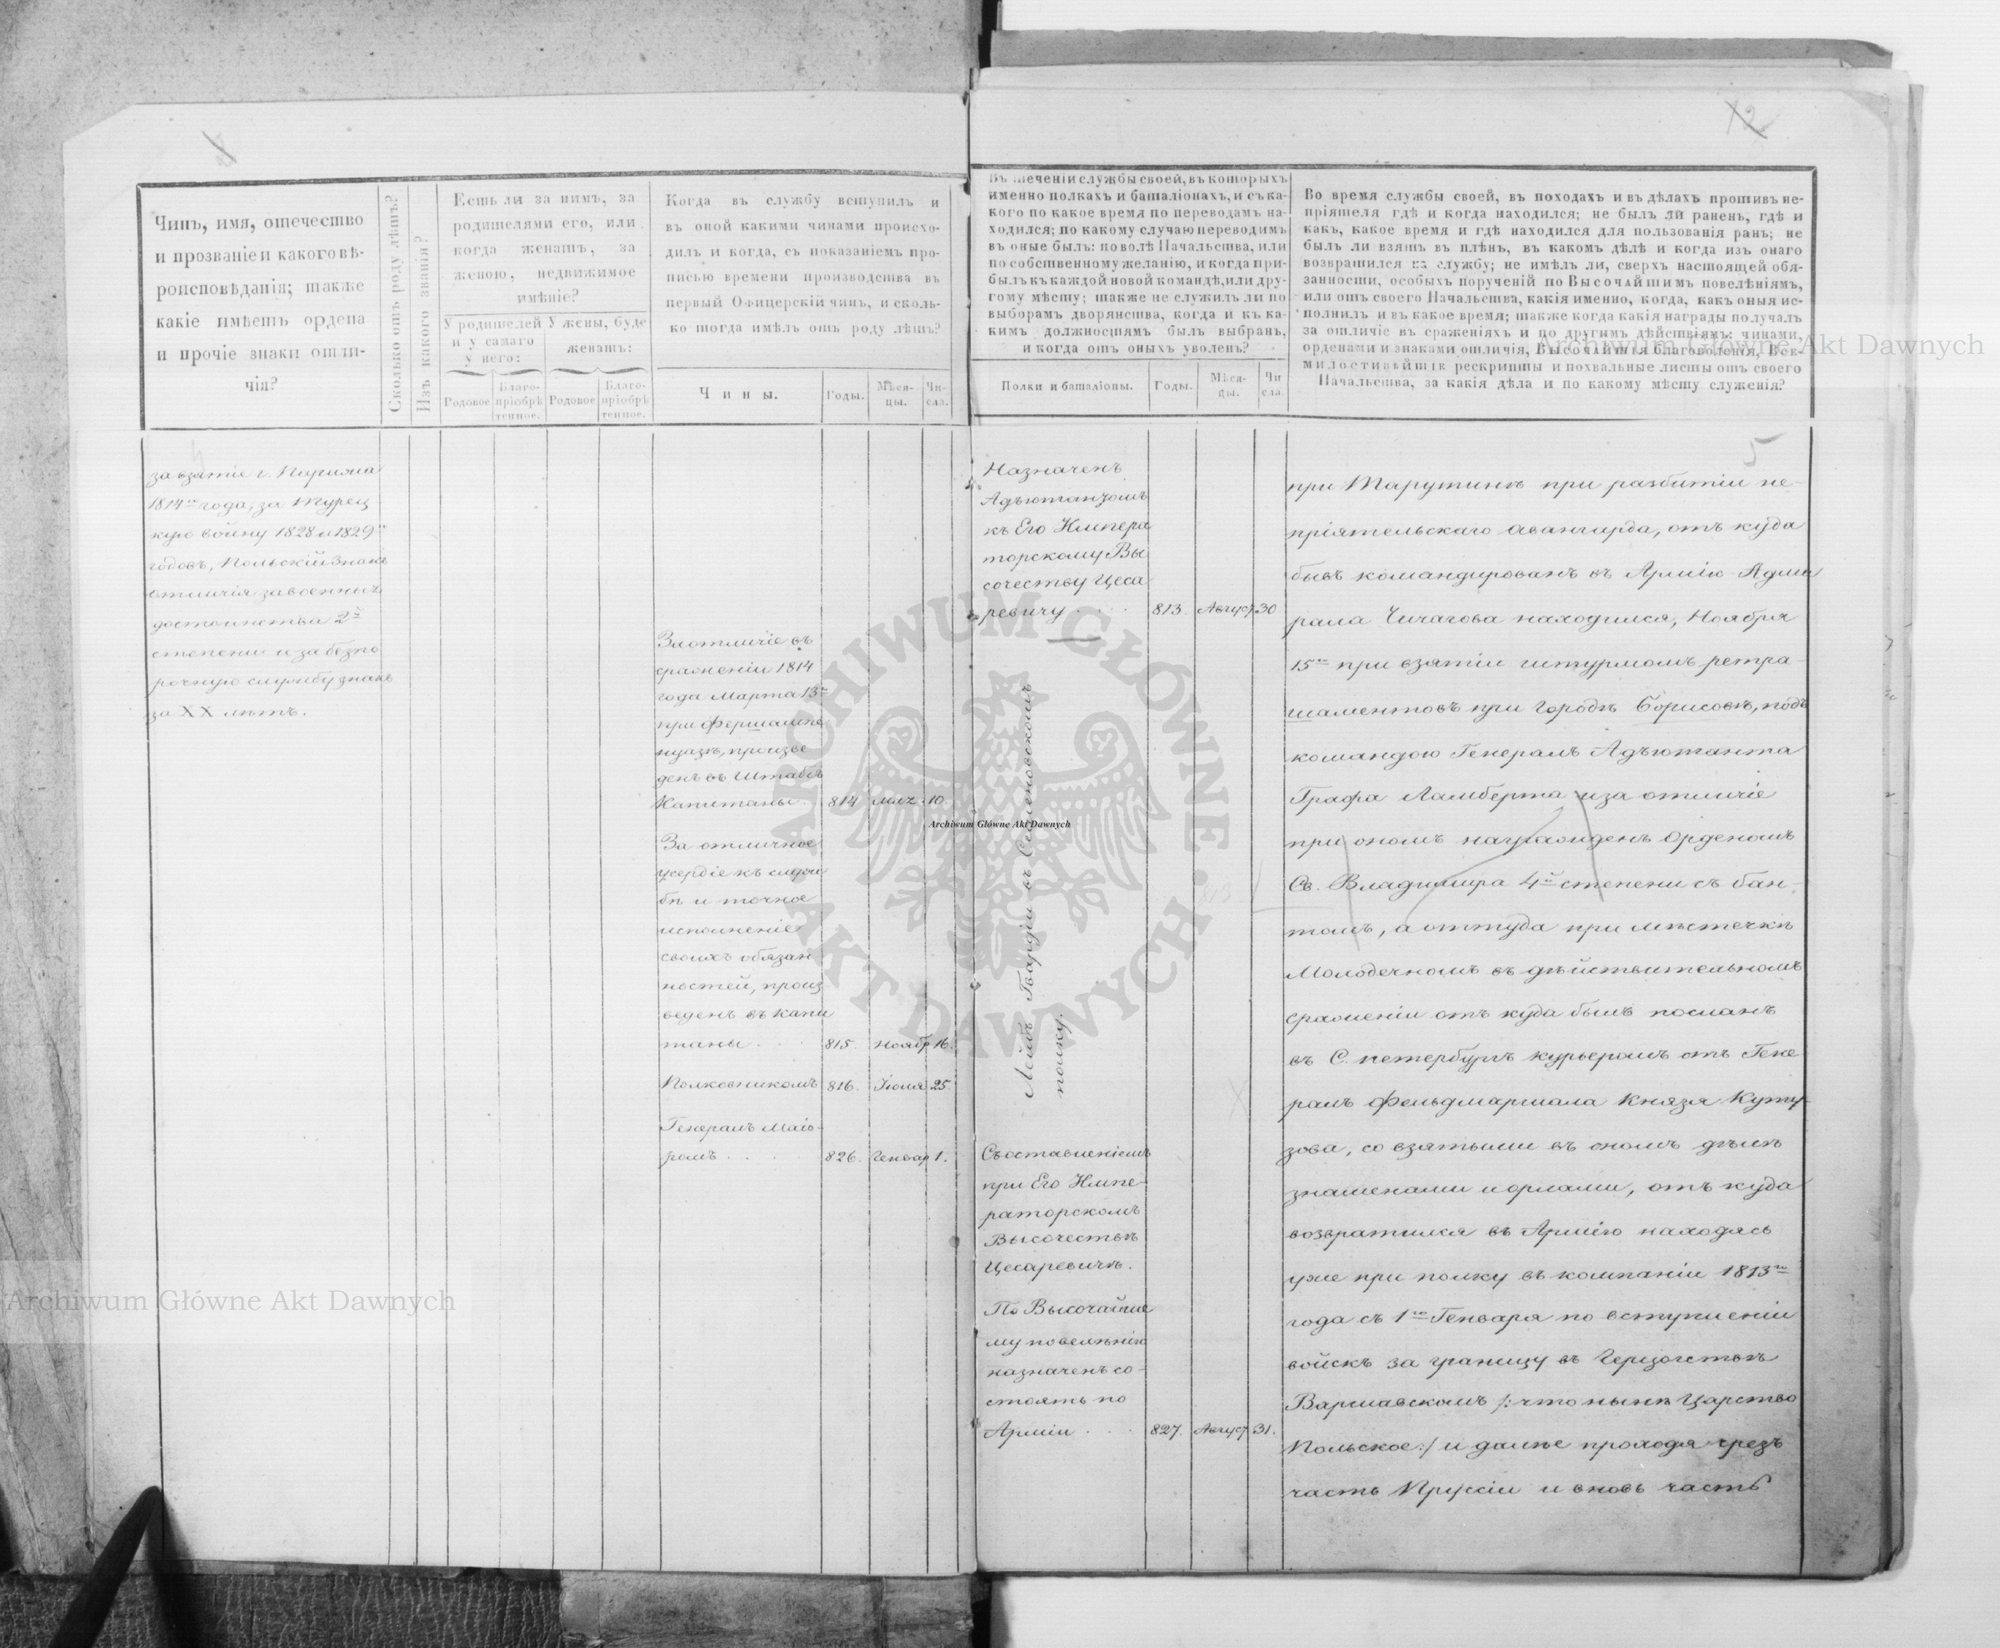 12
Чинъ, имя, отечество
и прозваніе и какого вѣ-
роисповѣданія; также
какіе имѣетъ ордена
и прочіе знаки отли-
чія?
Сколько отъ роду лѣтъ?
Изъ какого званія?
Есть ли за нимъ, за
родителями его, или
когда женатъ, за
женою, недвижимое
имѣніе?
У родителей
и у самаго
у него:
У жены, буде
женатъ:
Родовое
Благо-
пріобрѣ
тенное.
Родовое
Благо-
пріобрѣ
тенное.
Когда въ службу вступилъ и
въ оной какими чинами происхо-
дилъ и когда, съ показаніемъ про-
писью времени производства въ
первый Офицерскій чинъ, и сколь-
ко тогда имѣлъ отъ роду лѣтъ?
Чины.
Годы.
Мѣся-
цы.
Чи-
сла.
Въ теченіи службы своей, въ которыхъ
именно полкахъ и баталіонахъ, и съ ка-
кого по какое время по переводамъ на-
ходился; по какому случаю переводимъ
въ оные былъ: по волѣ Начальства, или
по собственному желанію, и когда при-
былъ къ каждой новой командѣ, или дру-
гому мѣсту; также не служилъ ли по
выборамъ дворянства, когда и къ ка-
кимъ должностямъ былъ выбранъ,
и когда отъ оныхъ уволенъ?
Полки и баталіоны.
Годы.
Мѣся-
цы.
Чи
сла.
Во время службы своей, въ походахъ и въ дѣлахъ противъ не-
пріятеля гдѣ и когда находился; не былъ ли раненъ, гдѣ и
какъ, какое время и гдѣ находился для пользованія ранъ; не
былъ ли взятъ въ плѣнъ, въ какомъ дѣлѣ и когда изъ онаго
возвратился на службу; не имѣлъ ли, сверхъ настоящей обя-
занности, особыхъ порученій по Высочайшимъ повелѣніямъ,
или отъ своего Начальства, какія именно, когда, какъ оныя ис-
полнилъ и въ какое время; также когда какія награды получалъ
за отличіе въ сраженіяхъ и по другимъ дѣйствіямъ: чинами,
орденами и знаками отличія, Высочайшія благоволенія, Все-
милостивѣйшіе рескрипты и похвальные листы отъ своего
Начальства, за какія дѣла и по какому мѣсту служенія?
за взятіе г. Парижа
1814го года, за Турец
кую войну 1828 и 1829хъ
годовъ, Польскій Знакъ
отличія за военныя
достоинства 2й
степени и за безпо
рочную службу знакъ
за XX лѣтъ.
За отличіе въ
сраженіи 1814
года Марта 13го
при Фершампе
нуазѣ, произве
денъ въ Штабсъ
Капитаны
814
10.
За отличное
усердіе къ служ
бѣ и точное
исполненіе
своихъ обязан
ностей, произ
веденъ въ Капи
таны
815.
Ноябр
16.
Полковникомъ
816.
Іюля
25.
Генералъ Маіо-
ромъ
826.
Генвар
1.
Назначенъ
Адъютантомъ
къ Его Импера
торскому Вы
сочеству Цеса
ревичу
813.
Август
30
Лейбъ Гвардіи въ Семеновскомъ
полку.
Съ оставленіемъ
при Его Импе-
раторскомъ
Высочествѣ
Цесаревичѣ.
По Высочайше
му повелѣнію
назначенъ со-
стоять по
Арміи
827.
Август
31.
5
при Тарутинѣ при разбитіи не-
пріятельскаго авангарда, отъ куда
бывъ командированъ въ Армію Адми
рала Чичагова находился, Ноября
15го при взятіи штурмомъ ретра-
шаментовъ при городѣ Борисовѣ, подъ
командою Генералъ Адъютанта
Графа Ламберта и за отличіе
при ономъ награжденъ Орденомъ
Св. Владимира 4й степени съ бан-
томъ, а оттуда при мѣстечкѣ
Молодечномъ въ дѣйствительномъ
сраженіи отъ куда былъ посланъ
въ С. петербургъ курьеромъ отъ Гене
ралъ Фельдмаршала Князя Куту-
зова, со взятыми въ ономъ дѣлѣ
знаменами и орлами, отъ куда
возвратился въ Армію находясь
уже при полку въ компаніи 1813го
года съ 1го Генваря по вступленіи
войскъ за границу въ Герцогствѣ
Варшавскомъ /: что нынѣ Царство
Польское :/ и далѣе проходя чрезъ
часть Пруссіи и вновь часть
Archiwum Główne Akt Dawnych
Archiwum Główne Akt Dawnych
Archiwum Główne Akt Dawnych
ARCHIWUM GŁÓWNE AKT DAWNYCH